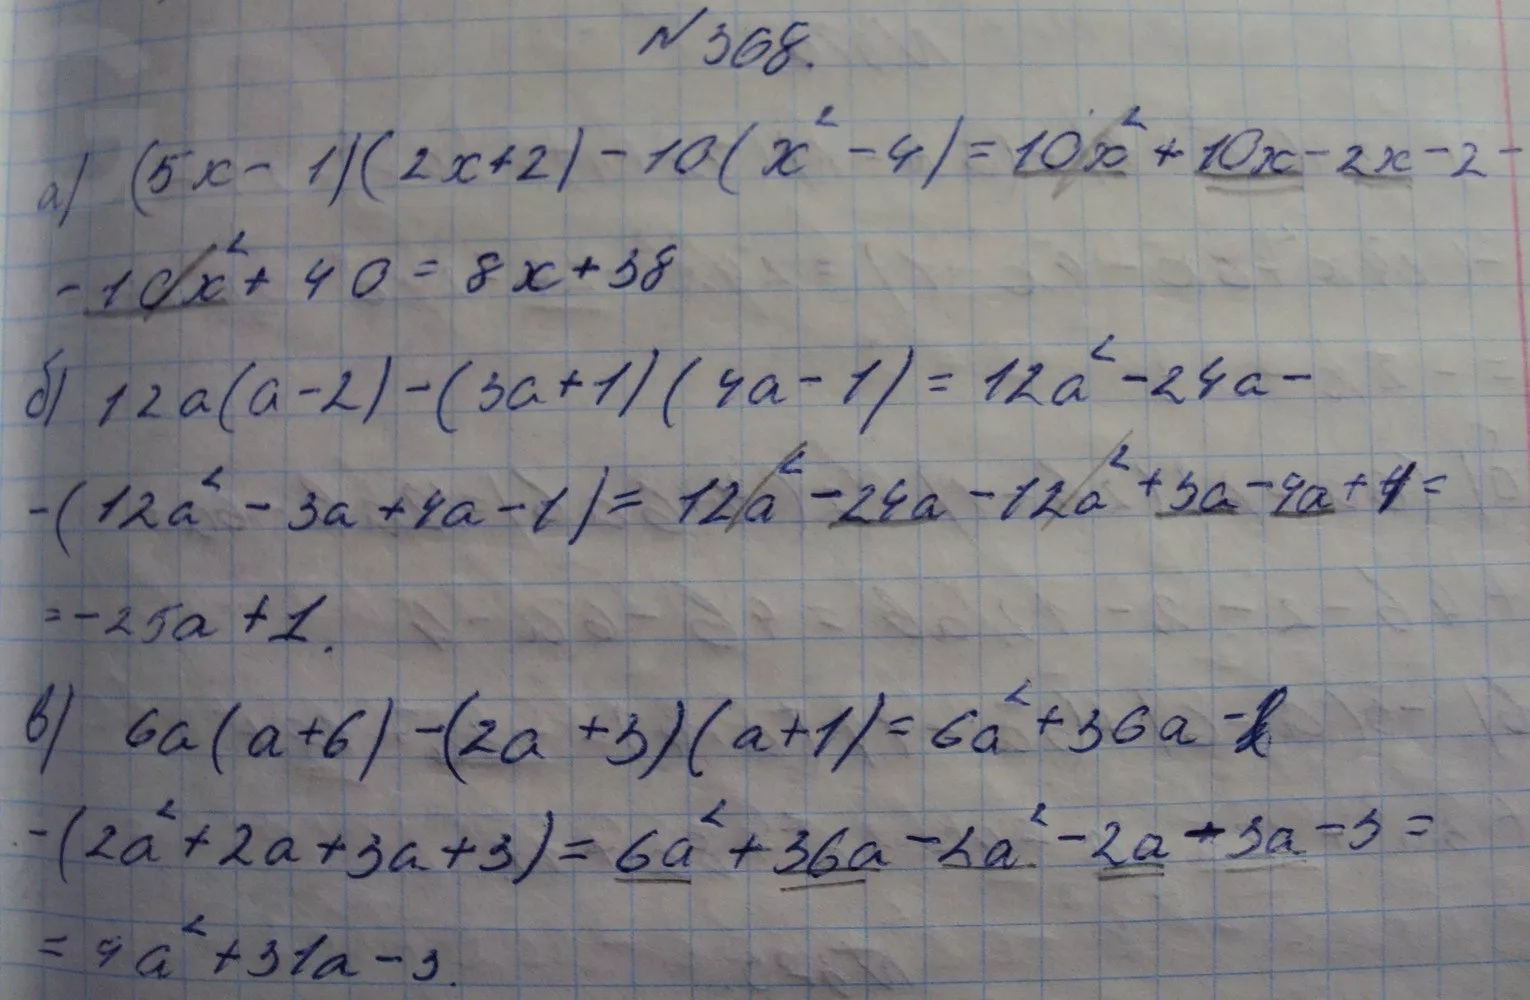 №368.
а) (5x-1)(2x+2)-10(x²-4)=10x²+10x-2x-2-
-10x²+40=8x+38
б) 12a(a-2)-(3a+1)(4a-1)=12a²-24a-
-(12a²-3a+4a-1)=12a²-24a-12a²+3a-4a+1=
=-25a+1.
в) 6a(a+6)-(2a+3)(a+1)=6a²+36a-
-(2a²+2a+3a+3)=6a²+36a-2a²-2a-3a-3=
=4a²+31a-3.